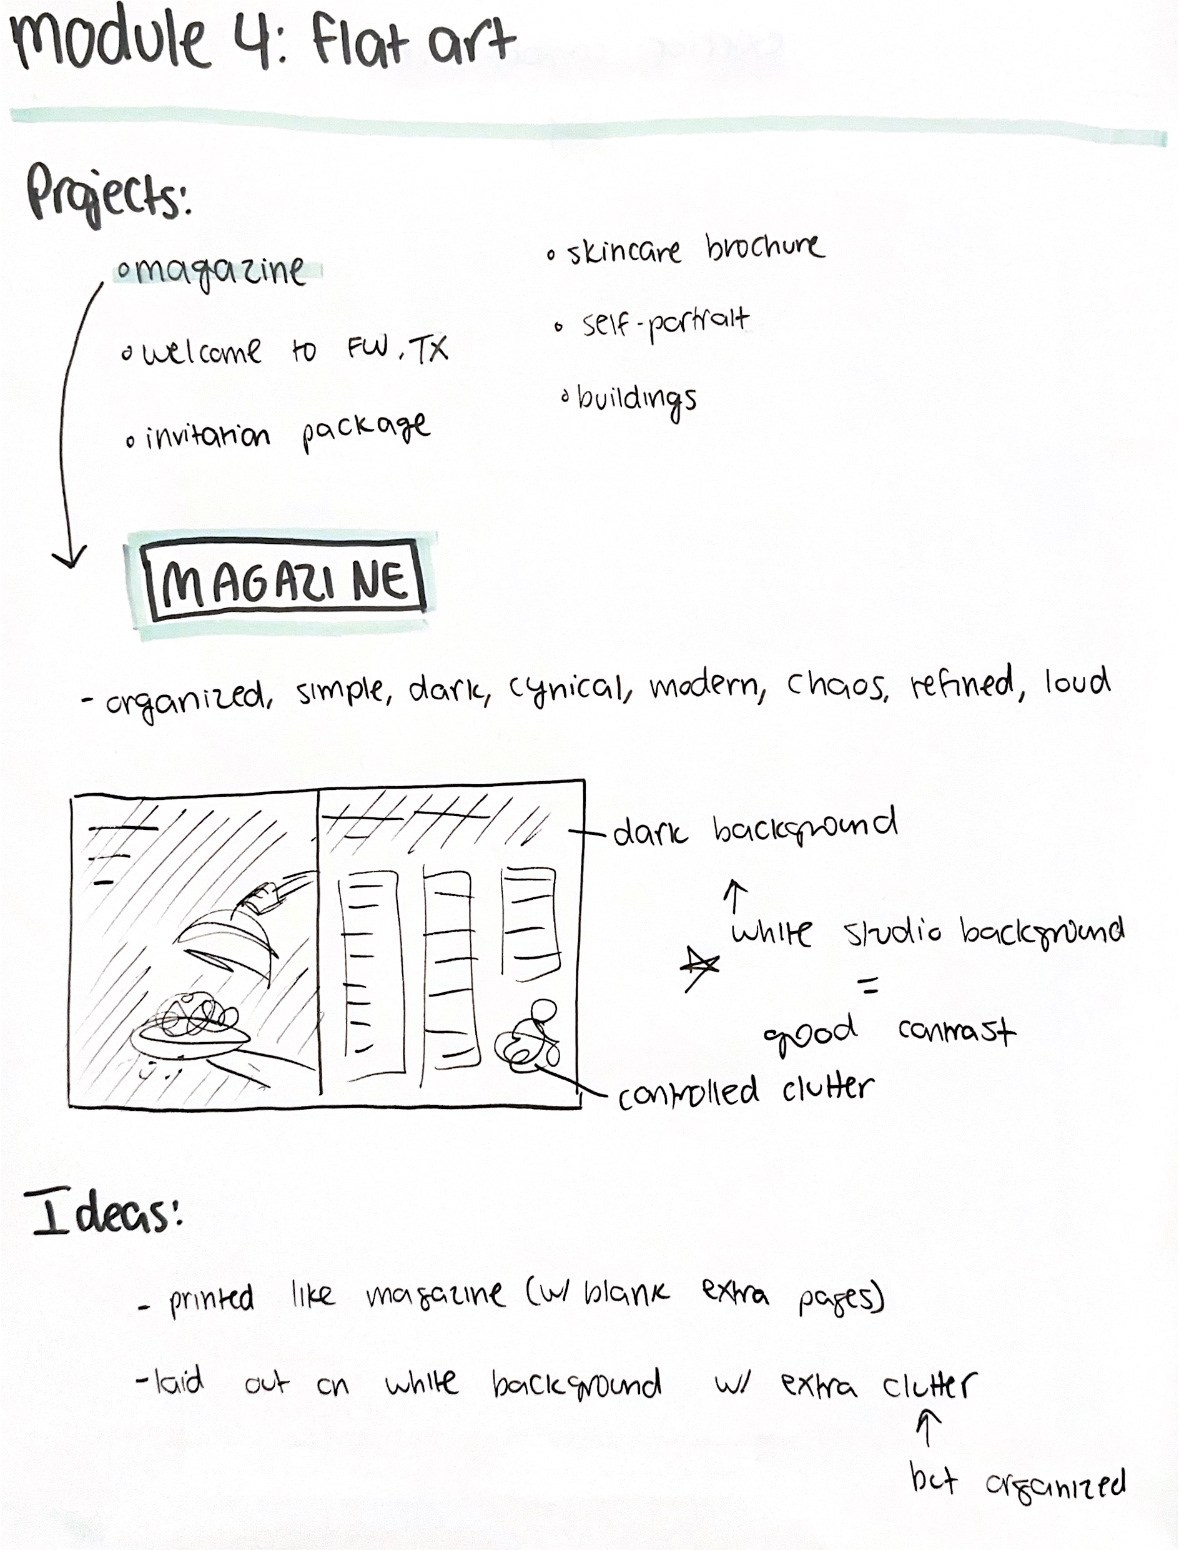 Module 4: Flat art
Projects:
magazine
welcome to FW, TX
invitation package
skincare brochure
self-portrait
buildings
MAGAZINE
- organized, simple, dark, cynical, modern, chaos, refined, loud
dark background
white studio background
=
good contrast
controlled clutter
Ideas:
- printed like magazine (w/ blank extra pages)
- laid out on white background w/ extra clutter
but organized